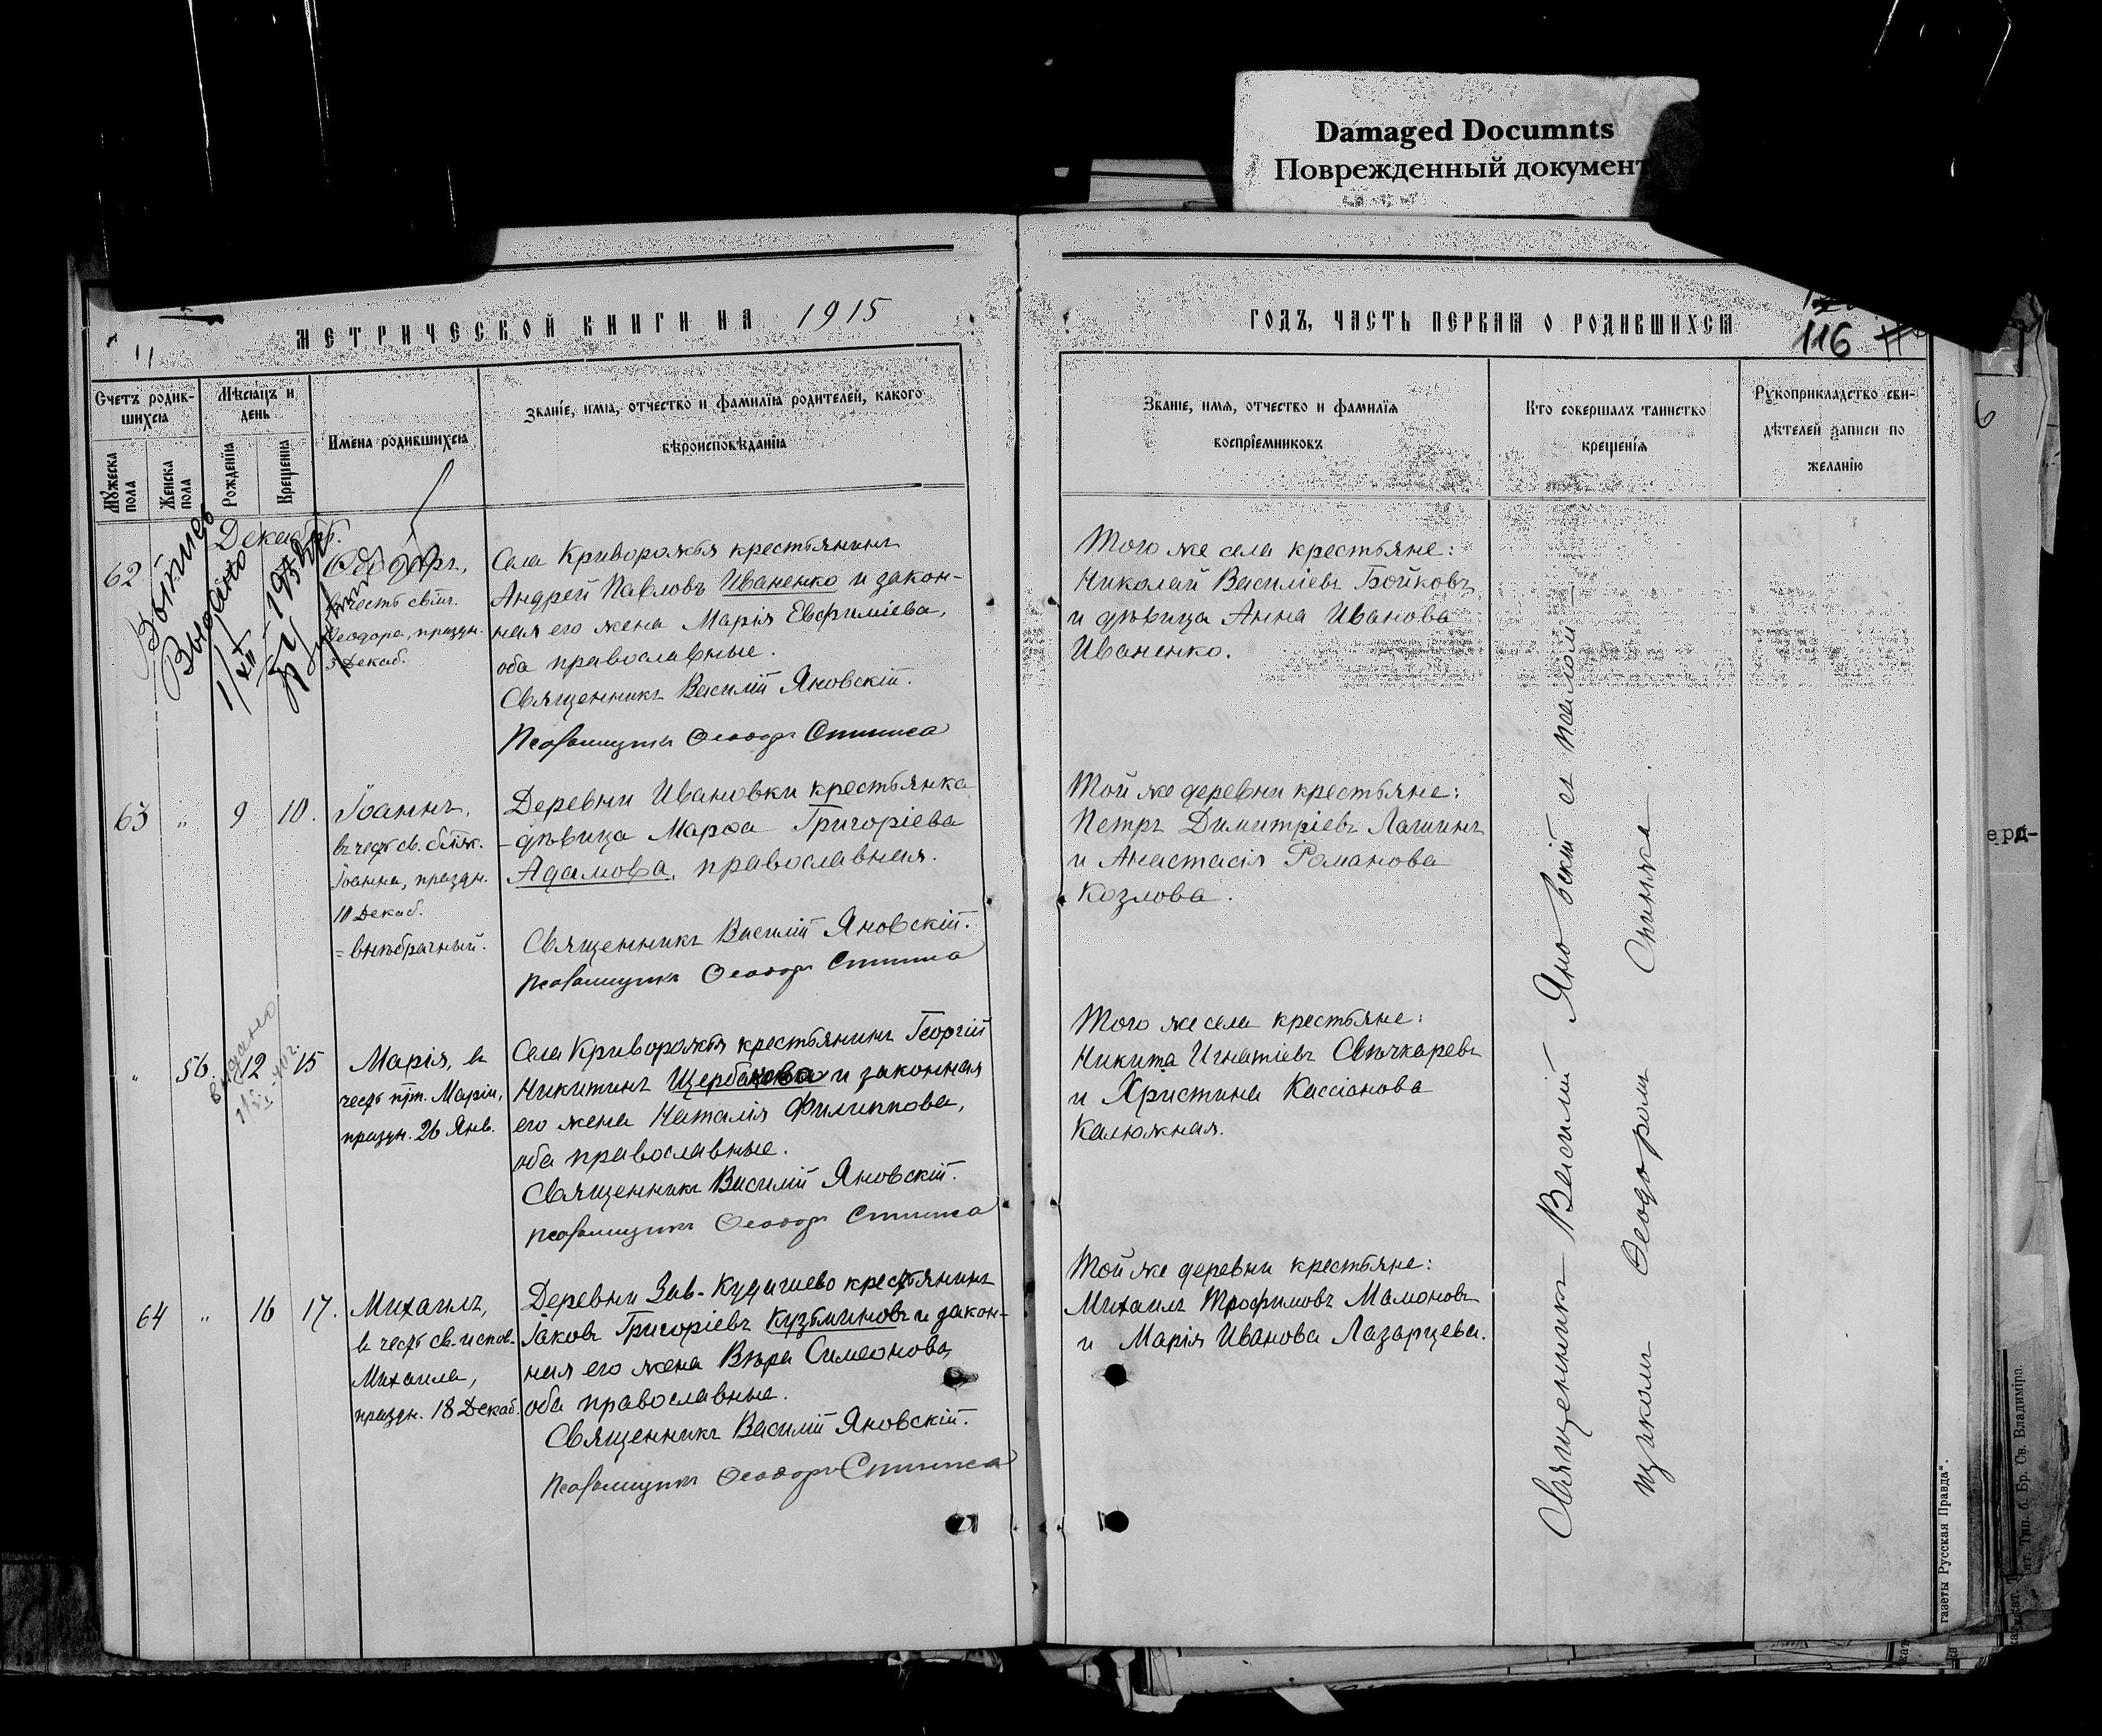 Damaged Documnts
Поврежденный документ
МЕТРИЧЕСКОЙ КНИГИ НА 1915
ГОДЪ, ЧАСТЬ ПЕРВАЯ О РОДИВШИХСЯ
116
Счетъ родив-
шихся
Мужеска пола
Женска пола
Мѣсяцъ и
день
Рожденія
Крещенія
Имена родившихся
Званіе, имя, отчество и фамилія родителей, какого
вѣроисповѣданія
Званіе, имя, отчество и фамилія
воспріемниковъ
Кто совершалъ таинство
крещенія
Рукоприкладство сви-
дѣтелей записи по
желанію
Декабрь.
62
Выдано
Ѳеодоръ,
въ честь свмч.
Ѳеодора, праздн.
3 Декаб.
Села Криворожья крестьянинъ
Андрей Павловъ Иваненко и закон-
ная его жена Марія Евфиміева,
оба православные.
Священникъ Василій Яновскій.
Псаломщикъ Ѳеодоръ
Того же села крестьяне:
Николай Василіевъ Бойковъ
и дѣвица Анна Иванова
Иваненко.
63 " 9 10.
Іоаннъ,
въ честь св. блж.
Іоанна, праздн.
10 Декаб.
= внѣбрачный.
Деревни Ивановки крестьянка
- дѣвица Марѳа Григоріева
Адамова, православная.
Священникъ Василій Яновскій.
Псаломщикъ Ѳеодоръ
Той же деревни крестьяне:
Петръ Димитріевъ Лашинъ
и Анастасія Романова
Козлова.
" 56. 12 15
выдано
Марія, въ
честь прп. Маріи,
праздн. 26 Янв.
Села Криворожья крестьянинъ Георгій
Никитинъ Щербакова и законная
его жена Наталія Филиппова,
оба православные.
Священникъ Василій Яновскій.
Псаломщикъ Ѳеодоръ
Того же села крестьяне:
Никита Игнатіевъ Свѣчкаревъ
и Христина Кассіанова
Калюжная.
64 " 16 17.
Михаилъ,
въ честь св. испов.
Михаила,
праздн. 18 Декаб.
Деревни Зав.-Кудашево крестьянинъ
Іаковъ Григоріевъ Кузьминовъ и закон-
ная его жена Вѣра Симеонова,
оба православные.
Священникъ Василій Яновскій.
Псаломщикъ Ѳеодоръ
Той же деревни крестьяне:
Михаилъ Трофимовъ Мамоновъ
и Марія Иванова Лазарцева.
Священникъ Василій Яновскій съ псалом-
щикомъ Ѳеодоромъ
газеты Русская Правда".
Тип. б. Бр. Св. Владиміра.